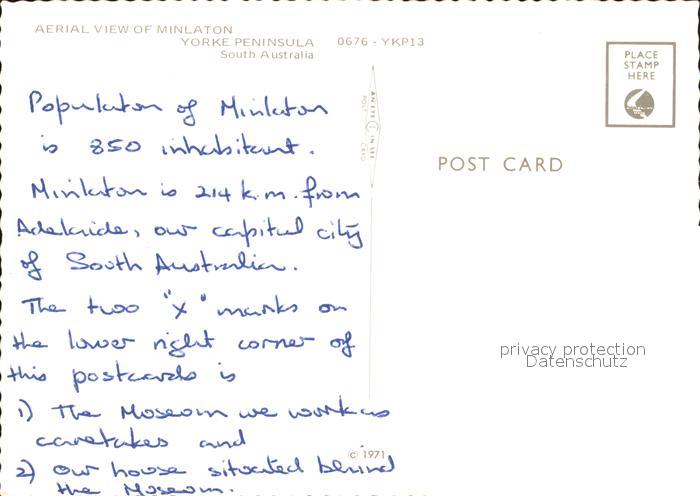 AERIAL VIEW OF MINLATON
YORKE PENINSULA 0676 - YKP13
South Australia
PLACE
STAMP
HERE
POST CARD
Population of Minlaton
is 850 inhabitant.
Minlaton is 214 k.m. from
Adelaide, our capital city
of South Australia.
The two "x" marks on
the lower right corner of
this postcards is
1) The Moseom we work as
caretakes and
2) our house situated behind
the Moseom.
© 1971
privacy protection
Datenschutz